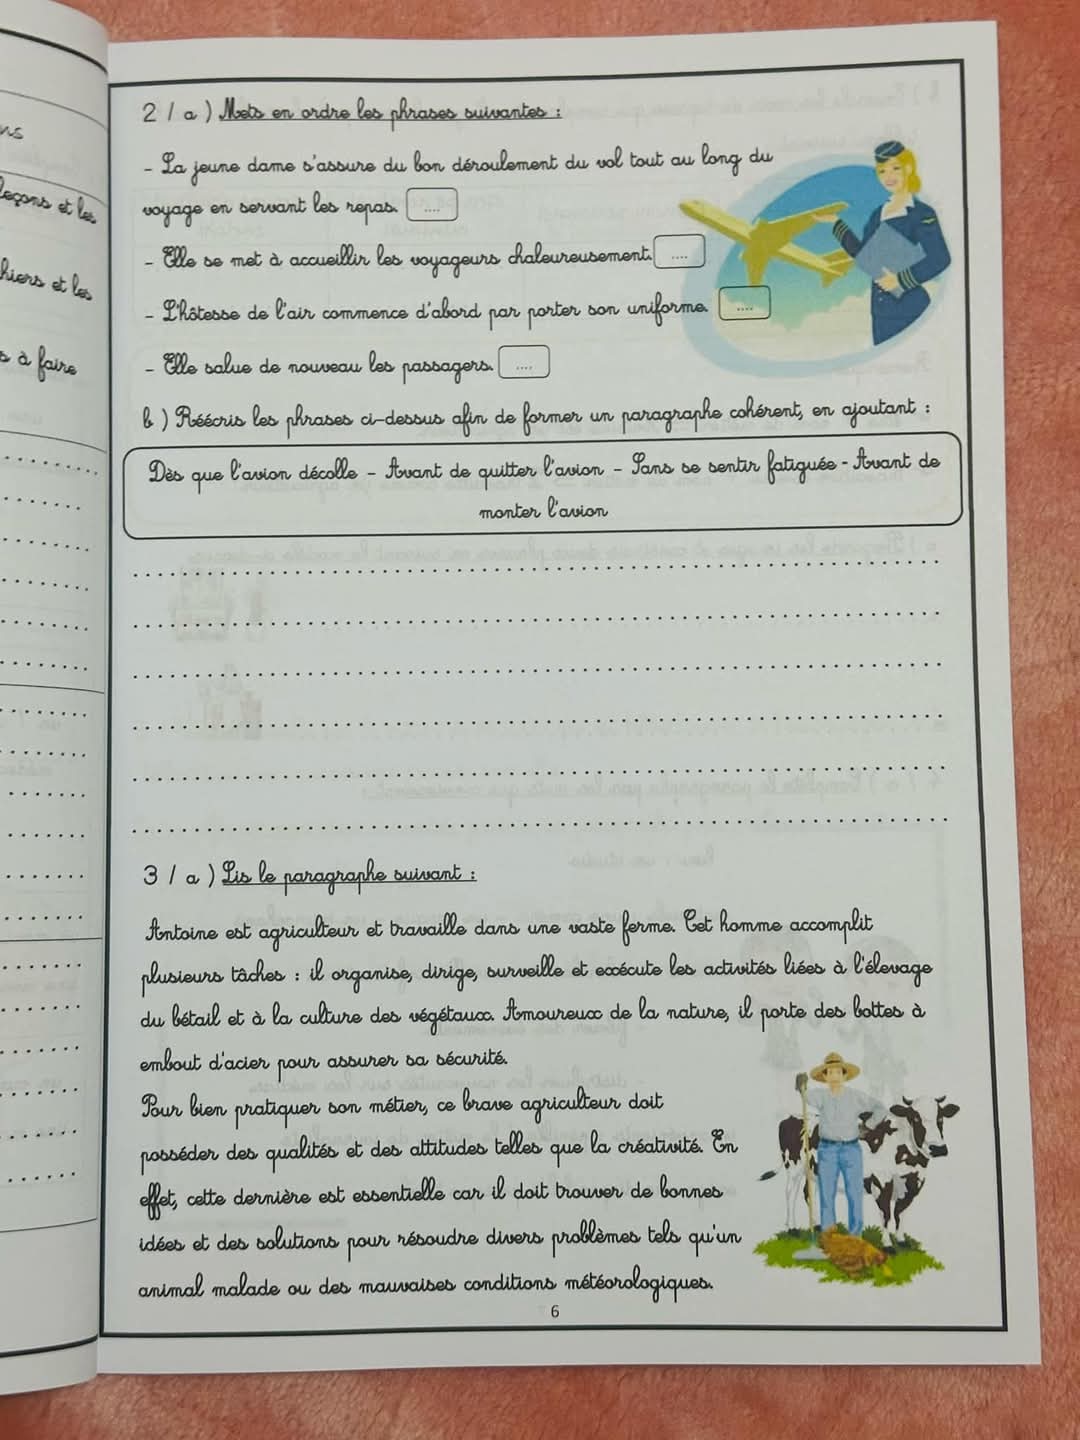 ns
leçons et les
hiers et les
s à faire
2 / a ) Mets en ordre les phrases suivantes :
- La jeune dame s'assure du bon déroulement du vol tout au long du
voyage en servant les repas. ....
- Elle se met à accueillir les voyageurs chaleureusement. ....
- L'hôtesse de l'air commence d'abord par porter son uniforme. ....
- Elle salue de nouveau les passagers. ....
b ) Réécris les phrases ci-dessus afin de former un paragraphe cohérent, en ajoutant :
Dès que l'avion décolle - Avant de quitter l'avion - Sans se sentir fatiguée - Avant de
monter l'avion
3 / a ) Lis le paragraphe suivant :
Antoine est agriculteur et travaille dans une vaste ferme. Cet homme accomplit
plusieurs tâches : il organise, dirige, surveille et exécute les activités liées à l'élevage
du bétail et à la culture des végétaux. Amoureux de la nature, il porte des bottes à
embout d'acier pour assurer sa sécurité.
Pour bien pratiquer son métier, ce brave agriculteur doit
posséder des qualités et des attitudes telles que la créativité. En
effet, cette dernière est essentielle car il doit trouver de bonnes
idées et des solutions pour résoudre divers problèmes tels qu'un
animal malade ou des mauvaises conditions météorologiques.
6